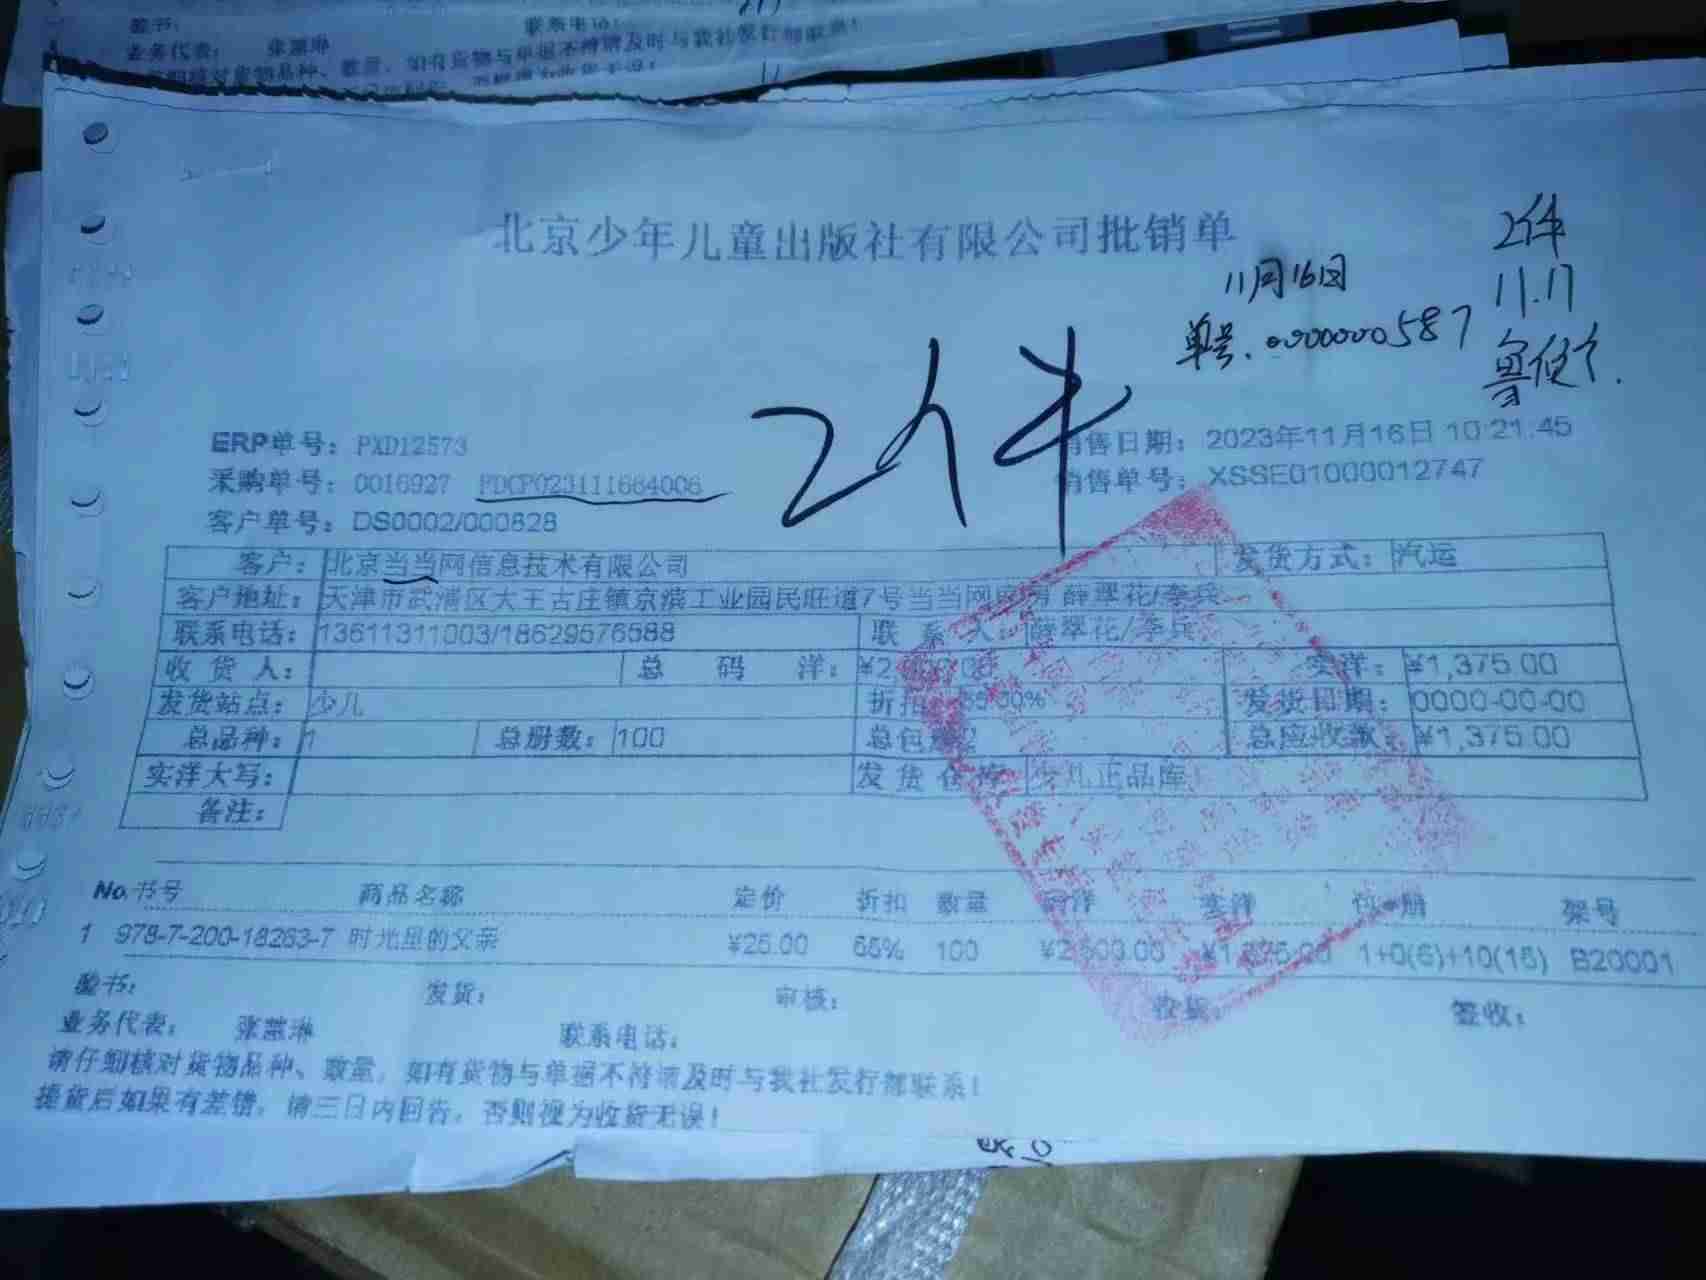 脸书： 联系电话：
业务代表： 张慧琳
北京少年儿童出版社有限公司批销单
2件
11月16日
11.17
单号.0000000587
2件
ERP单号：PXD12573
销售日期：2023年11月16日 10:21.45
采购单号：0016927
销售单号：XSSE01000012747
客户单号：DS0002/000828
客户：北京当当网信息技术有限公司 发货方式：汽运
客户地址：天津市武清区大王古庄镇京滨工业园民旺道7号当当网 薛翠花/李兵
联系电话：13611311003/18629576588 联系人：薛翠花/李兵
收货人： 总码洋： 实洋：¥1,375.00
发货站点：少儿 折扣 发货日期：0000-00-00
总品种：1 总册数：100 总包 总应收款：¥1,375.00
实洋大写： 发货仓库：少儿正品库
备注：
No.书号 商品名称 定价 折扣 数量 码洋 实洋 包+册 架号
1 978-7-200-18263-7 时光里的父亲 ¥25.00 55% 100 ¥2,500.00 ¥1,375.00 1+0(6)+10(15) B20001
脸书： 发货： 审核： 收货： 签收：
业务代表： 张慧琳 联系电话：
请仔细核对货物品种、数量，如有货物与单据不符请及时与我社发行部联系！
提货后如果有差错，请三日内回告，否则视为收货无误！